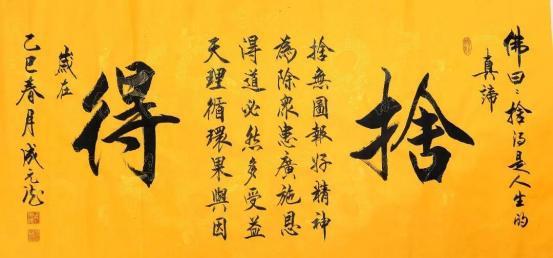 佛曰：捨得是人生的
真諦
捨
捨無圖報好精神
為除眾患廣施恩
得道必然多受益
天理循環果與因
得
歲在
乙巳春月成元